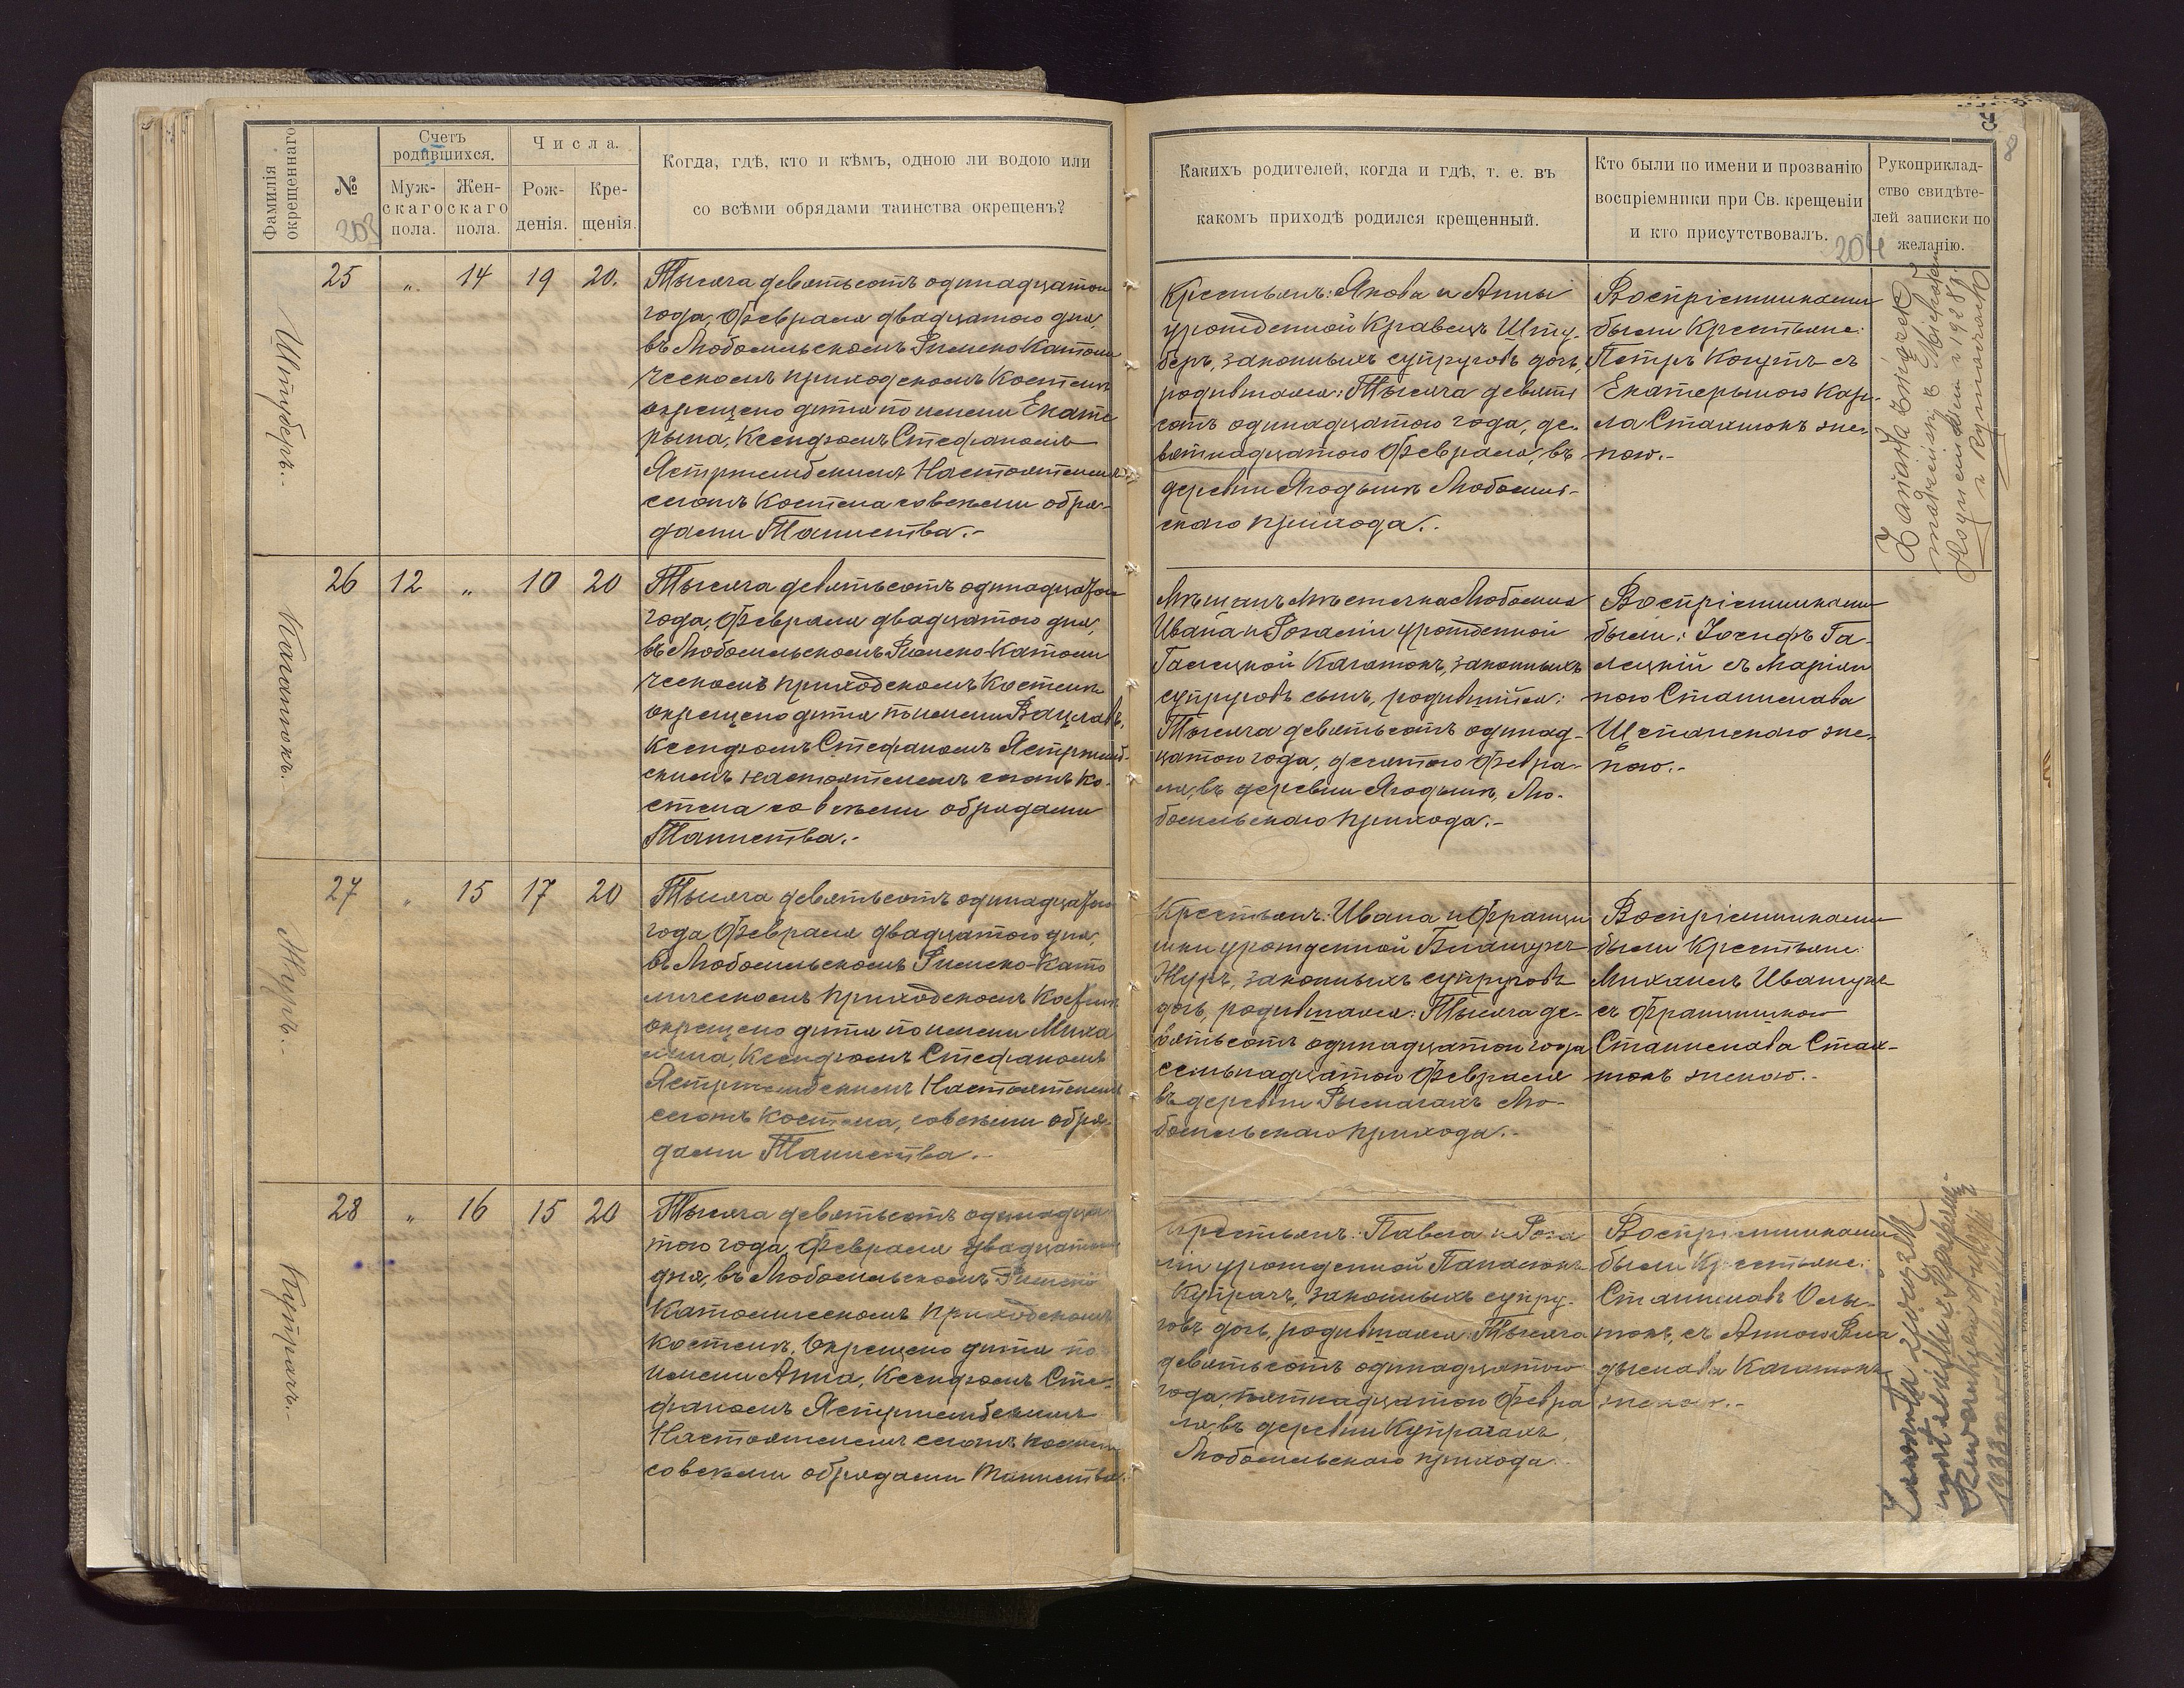 Фамилія окрещеннаго
№
Счетъ родившихся.
Муж-
скаго
пола.
Жен-
скаго
пола.
Числа.
Рож-
денія.
Кре-
щенія.
Когда, гдѣ, кто и кѣмъ, одною ли водою или
со всѣми обрядами таинства окрещенъ?
Какихъ родителей, когда и гдѣ, т. е. въ
какомъ приходѣ родился крещенный.
Кто были по имени и прозванію
воспріемники при Св. крещеніи
и кто присутствовалъ.
Рукоприклад-
ство свидѣте-
лей записки по
желанію.
203
204
8
Штуберъ.-
25 „ 14 19 20.
Тысяча девятьсотъ одинадцатого
года, Февраля двадцатого дня,
въ Любомльскомъ Римско Католи
ческомъ приходскомъ Костелѣ
окрещено дитя по имени Екате
рына, Ксендзомъ Стефаномъ
Ястржембскимъ Настоятелемъ
сегожъ Костела совсѣми обря-
дами Таинства.-
Крестьянъ: Якова и Анны
урожденной Кравецъ Шту-
беръ, законныхъ супруговъ дочь,
родившаяся: Тысяча девять
сотъ одинадцатого года, де-
вятнадцатого Февраля, въ
деревни Ягодынѣ Любомль-
скаго прихода.-
Воспріемниками
были Крестьяне:
Петръ Когутъ съ
Екатерыною Кар-
ла Стахнюкъ же-
ною.-
26 12 „ 10 20
Тысяча девятьсотъ одинадцатого
года, Февраля двадцатого дня,
въ Любомльскомъ Римско-Католи
ческомъ приходскомъ Костелѣ
окрещено дитя по имени Вацлавъ,
Ксендзомъ Стефаномъ Ястржемб-
скимъ настоятелемъ сегожъ Ко-
стела со всѣми обрядами
Таинства.-
Мѣщанъ Мѣстечка Любомля
Ивана и Розаліи урожденной
законныхъ
супруговъ сынъ, родившійся:
Тысяча девятьсотъ одинад-
цатого года, десятого Февра-
ля, въ деревни Ягодынѣ, Лю-
бомльскаго прихода.-
Воспріемниками
были: Іосифъ Га-
лецкій съ Маріян
ною Станислава
Щепанскаго же-
ною.-
Журъ.-
27 „ 15 17 20
Тысяча девятьсотъ одинадцатого
года Февраля двадцатого дня,
въ Любомльскомъ Римско-Като
лическомъ приходскомъ Костелѣ
окрещено дитя по имени Миха
лина, Ксендзомъ Стефаномъ
Ястржембскимъ Настоятелемъ
сегожъ Костела, совсѣми обря-
дами Таинства.-
Крестьянъ: Ивана и Францы
шки урожденной
Журъ, законныхъ супруговъ
дочь, родившаяся: Тысяча де-
вятьсотъ одинадцатого года
семьнадцатого Февраля
въ деревни Рымачахъ Лю-
бомльскаго прихода.-
Воспріемниками
были Крестьяне:
Михаилъ Иващукъ
съ Францишкою
Станислава Стах-
нюкъ женою.-
Купрачъ.-
28 „ 16 15 20
Тысяча девятьсотъ одинадца-
того года, Февраля двадцатого
дня, въ Любомльскомъ Римско
Католическомъ приходскомъ
Костелѣ, окрещено дитя по
имени Анна, Ксендзомъ Сте-
фаномъ Ястржембскимъ
Настоятелемъ сегожъ Костела
совсѣми обрядами Таинства.
Крестьянъ: Павла и Роза
ліи урожденной
Купрачъ, законныхъ супру-
говъ дочь, родившаяся: Тысяча
девятьсотъ одинадцатого
года, пятнадцатого Февра
ля, въ деревни Купрачахъ,
Любомльскаго прихода.
Воспріемниками
были Крестьяне:
Станиславъ
съ Анною Вла
дыслава
женою.-